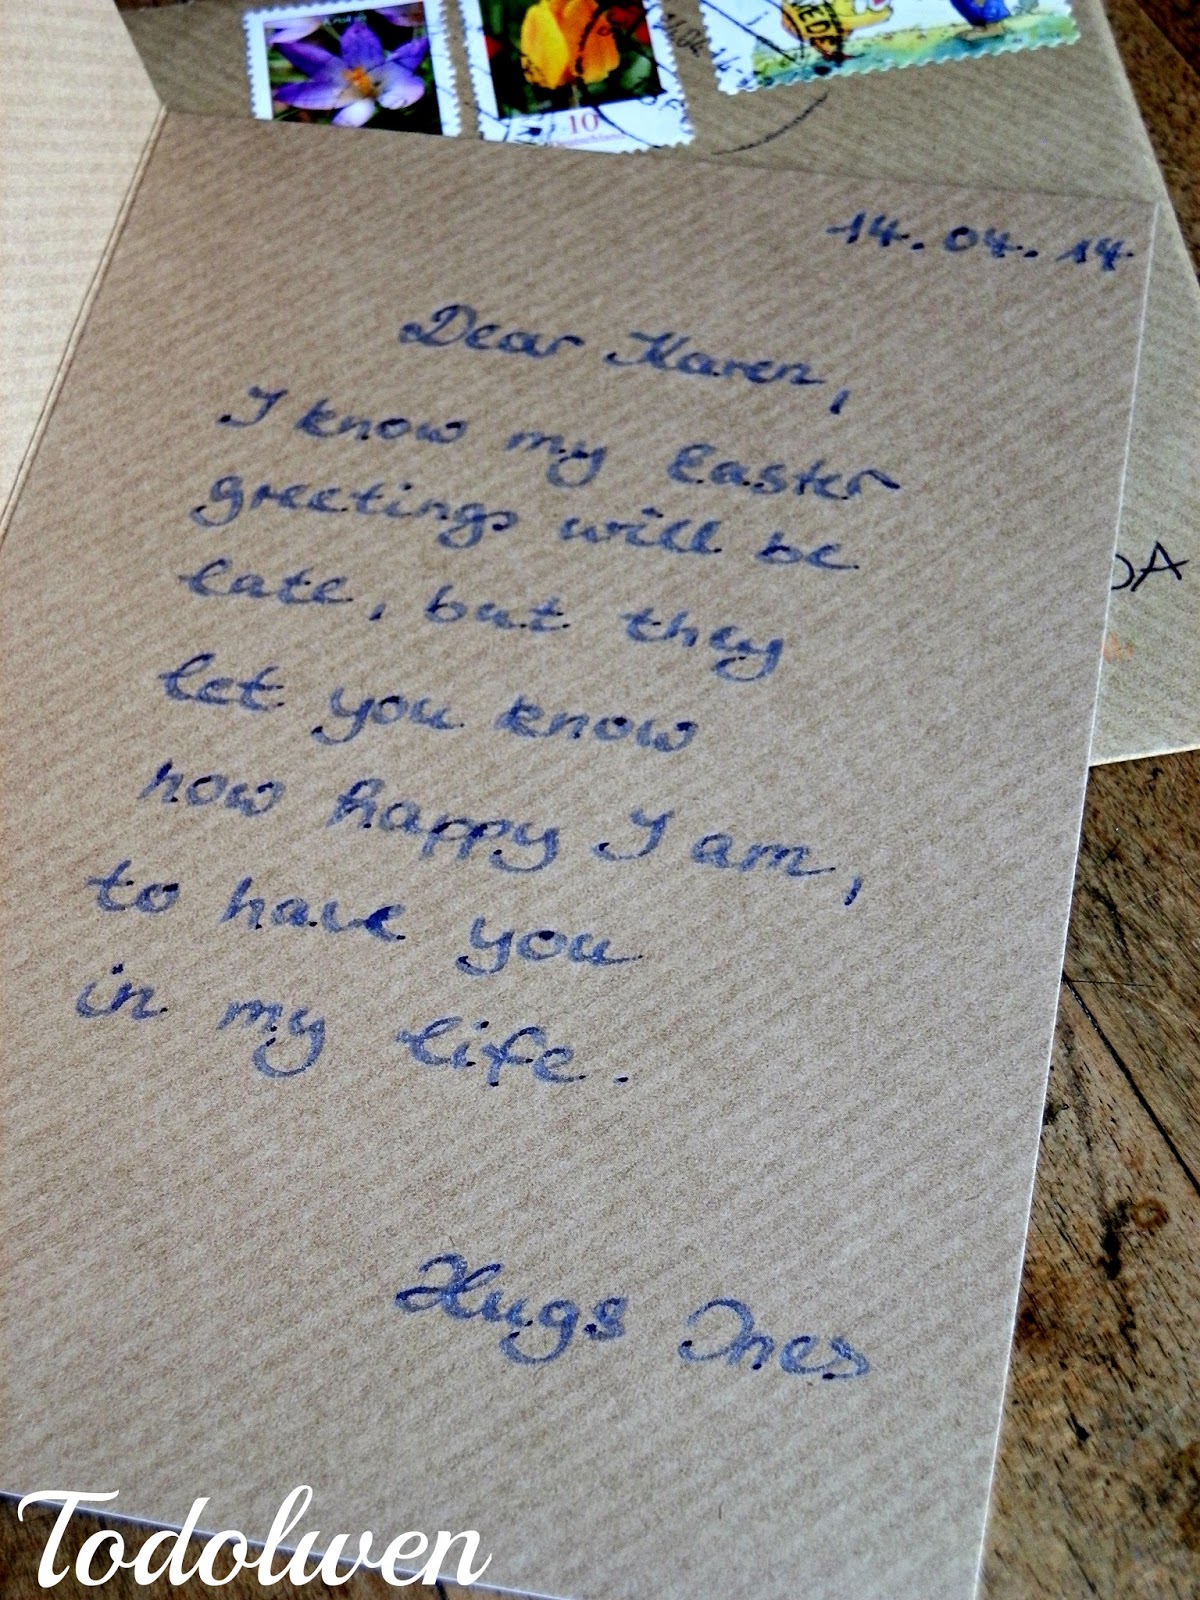 10
14.04.14
Dear Karen,
I know my Easter
greetings will be
late, but they
let you know
how happy I am,
to have you
in my life.
Hugs Ines
Todolwen